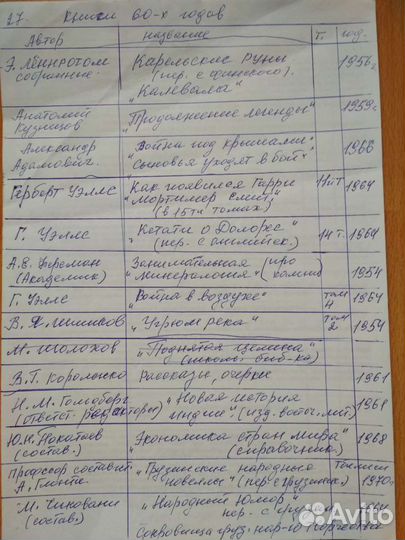 27. Книги 60-х годов
Автор название т. год.
Э. Лённротом Карельские руны 1956г.
собранные. (пер. с финского).
"Калевала"
Анатолий "Продолжение легенды" 1959г.
Кузнецов
Александр "Война под крышами" 1966
Адамович. "Сыновья уходят в бой"
Герберт Уэллс Как появился Гарри 11й т. 1964
"Мортимер Смит"
(в 15ти томах)
Г. Уэллс "Кстати о Долорес" 14 т. 1964
(пер. с английск.)
А.Е. Ферсман Занимательная (про 1954
(Академик) "минералогия" камни)
Г. Уэллс "Война в воздухе" том 4 1964
В. Я. Шишков "Угрюм река" том 2 1954
М. Шолохов "Поднятая целина"
(школьн. биб-ка)
В. Г. Короленко Рассказы, очерки 1961
Н. М. Гольдберг "Новая история 1961
(ответст. редакторы) Индии" (изд. восточ. лит.)
Ю.Н. "Экономика стран мира" 1968
(состав.) (справочник)
Профессор составит. "Грузинские народные Тбилиси
А. Глонти новеллы" (пер с грузинск.) 1970г.
М. Чиковани "Народный Юмор"
(состав.) пер. с
Сокровища груз. нар-го творчества
Avito